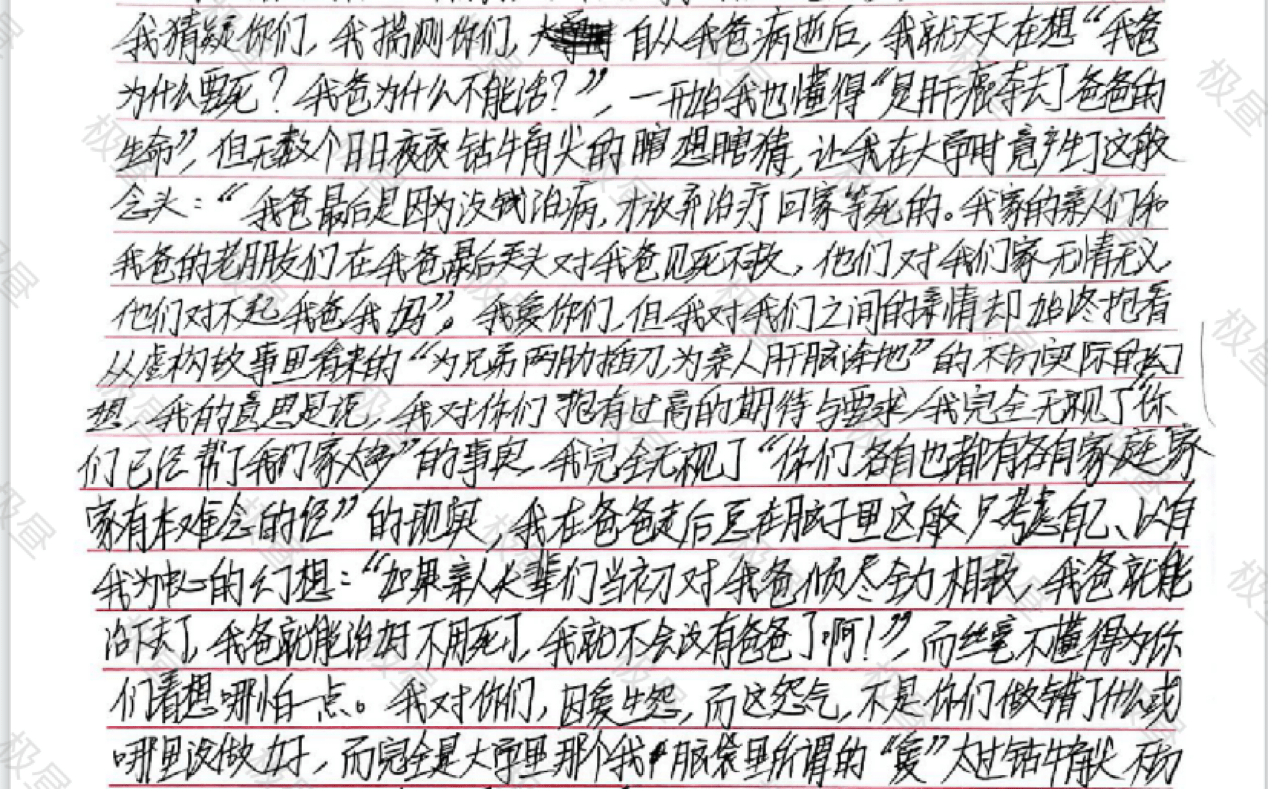 我猜疑你们，我揣测你们，大 自从我爸病逝后，我就天天在想“我爸
为什么要死？我爸为什么不能活？”，一开始我也懂得“是肝癌夺去了爸爸的
生命”，但无数个日日夜夜钻牛角尖的瞎想瞎猜，让我在大学时竟产生了这般
念头：“我爸最后是因为没钱治病，才放弃治疗回家等死的。我家的亲人们和
我爸的老朋友们在我爸最后关头对我爸见死不救，他们对我们家无情无义，
他们对不起我爸我妈”。我爱你们，但我对我们之间的亲情却始终抱着
从虚构故事里看来的“为兄弟两肋插刀，为亲人肝脑涂地”的不切实际的幻
想，我的意思是说，我对你们抱有过高的期待与要求，我完全无视了“你
们已经帮了我们家太多”的事实，我完全无视了“你们各自也都有各自家庭，家
家有本难念的经”的现实，我在爸爸走后 在脑子里这般只考虑自己、以自
我为中心的幻想：“如果亲人长辈们当初对我爸倾尽全力相救，我爸就能
活下去了，我爸就能治好不用死了，我就不会没有爸爸了啊！”，而丝毫不懂得为你
们着想哪怕一点。我对你们，因爱生怨，而这怨气，不是你们做错了什么或
哪里没做好，而完全是大学里那个我脑袋里所谓的“爱”太过钻牛角尖、不切
极昼
极昼
极昼
极昼
极昼
极昼
极昼
极昼